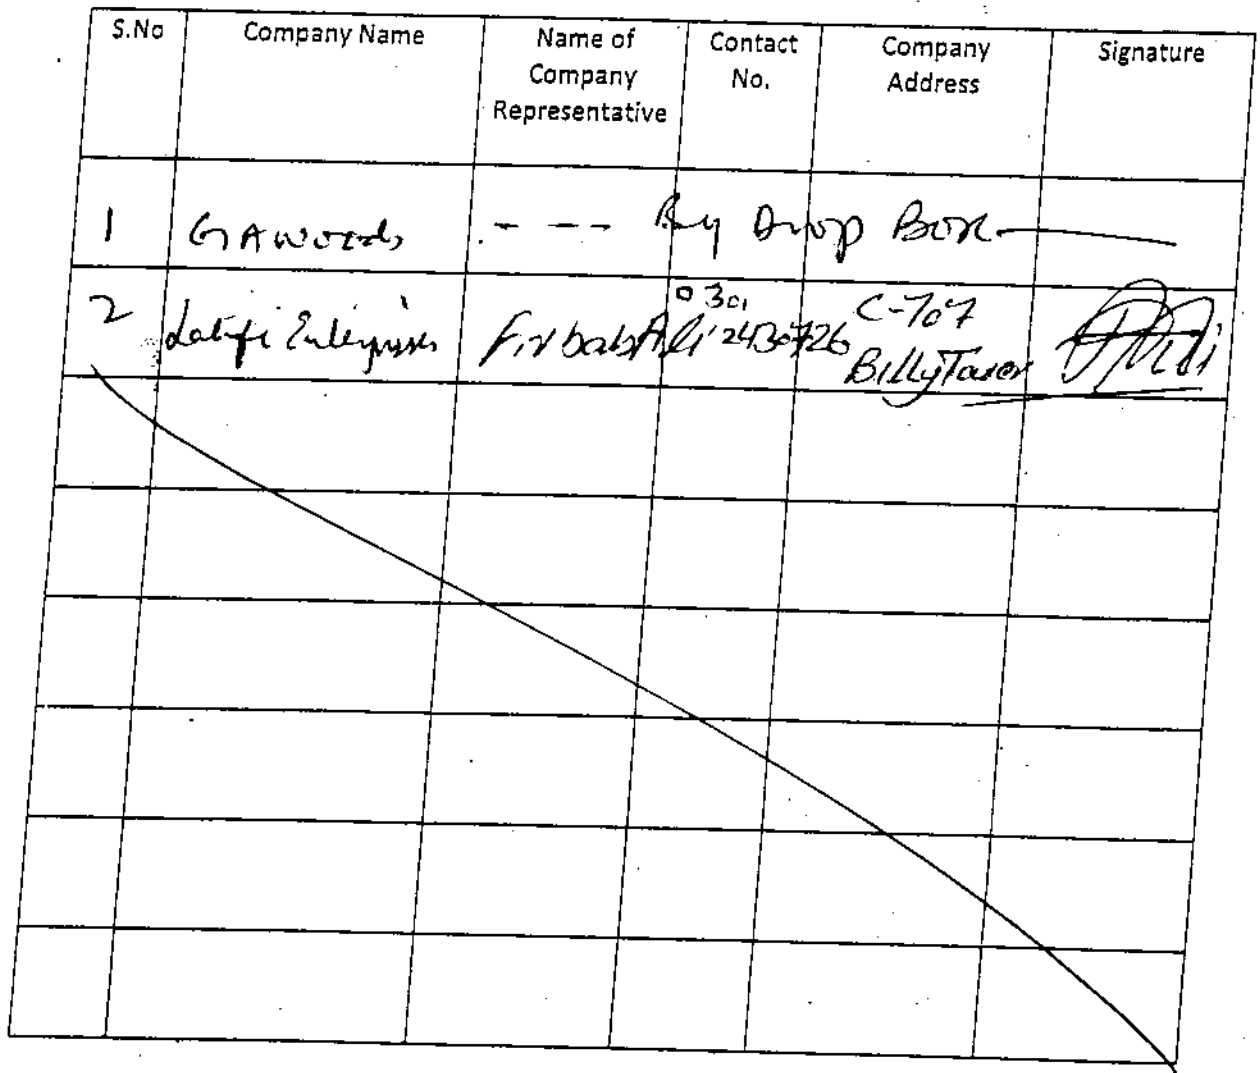 S.No Company Name Name of Company Representative Contact No. Company Address Signature
1 GA Woods - - - By Drop Box
2 Latifi Enterprises Ali 0301 2430726 C-707 Billy Tower